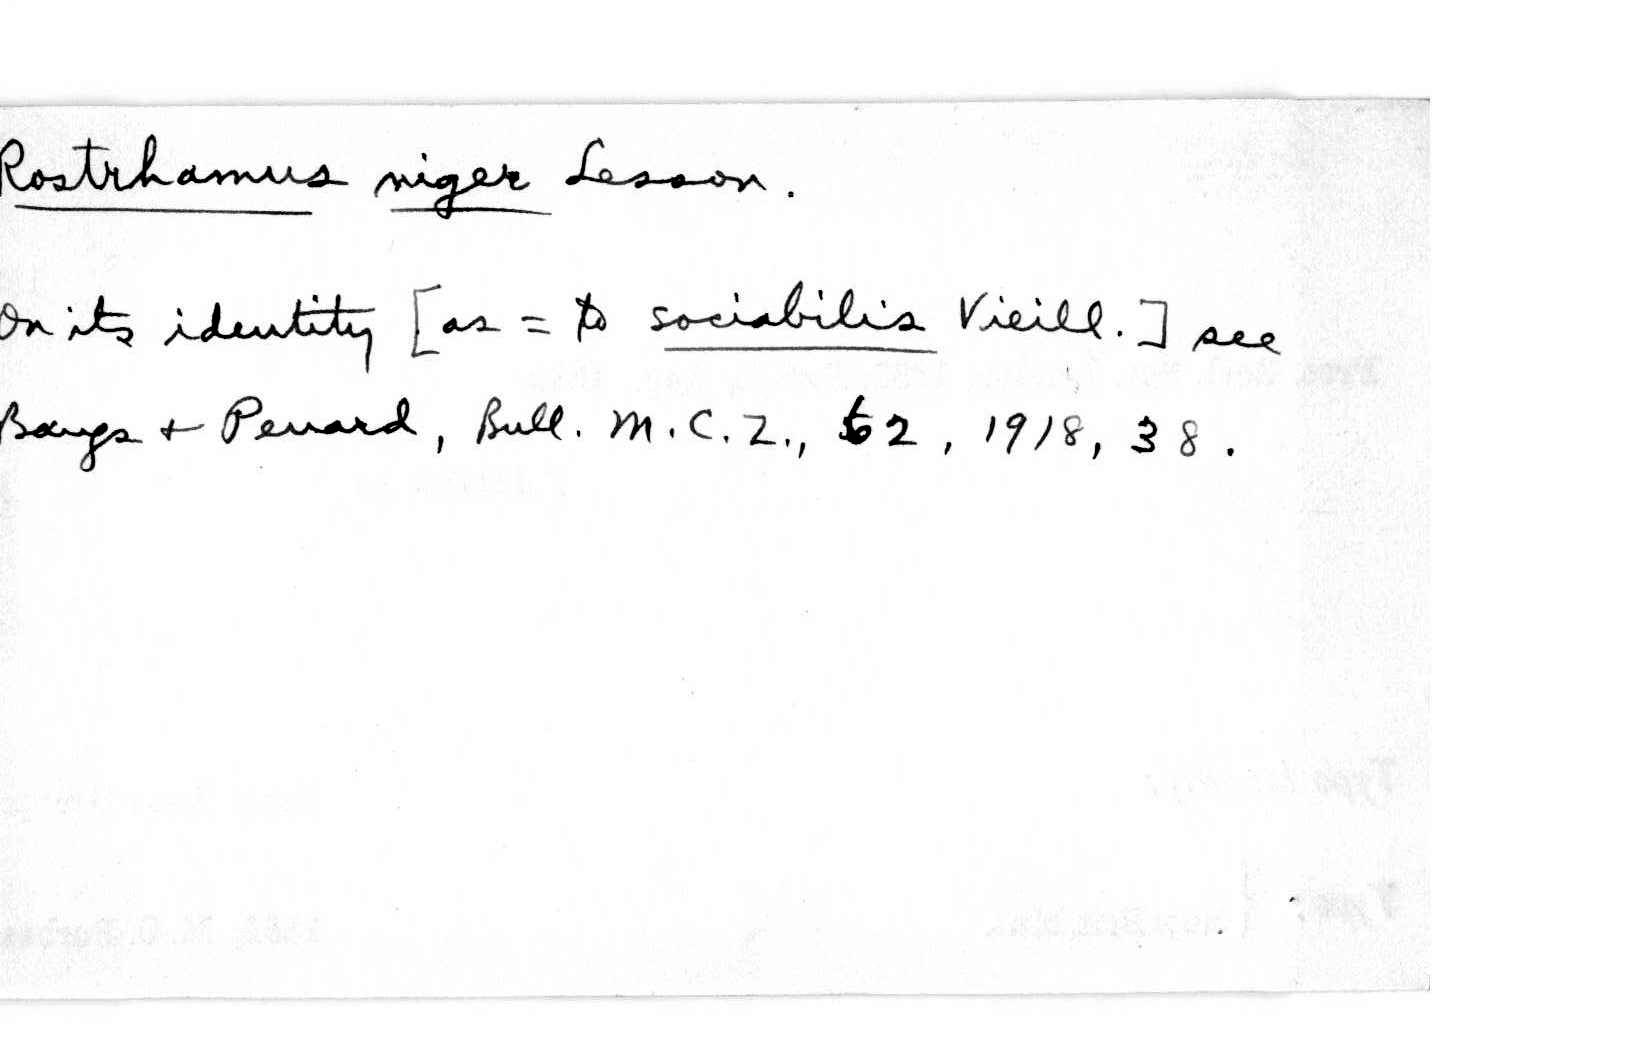 Rostrhamus niger Lesson.
On its identity [as = to sociabilis Vieill.] see
Bangs + Penard, Bull. M.C.Z., 62, 1918, 38.